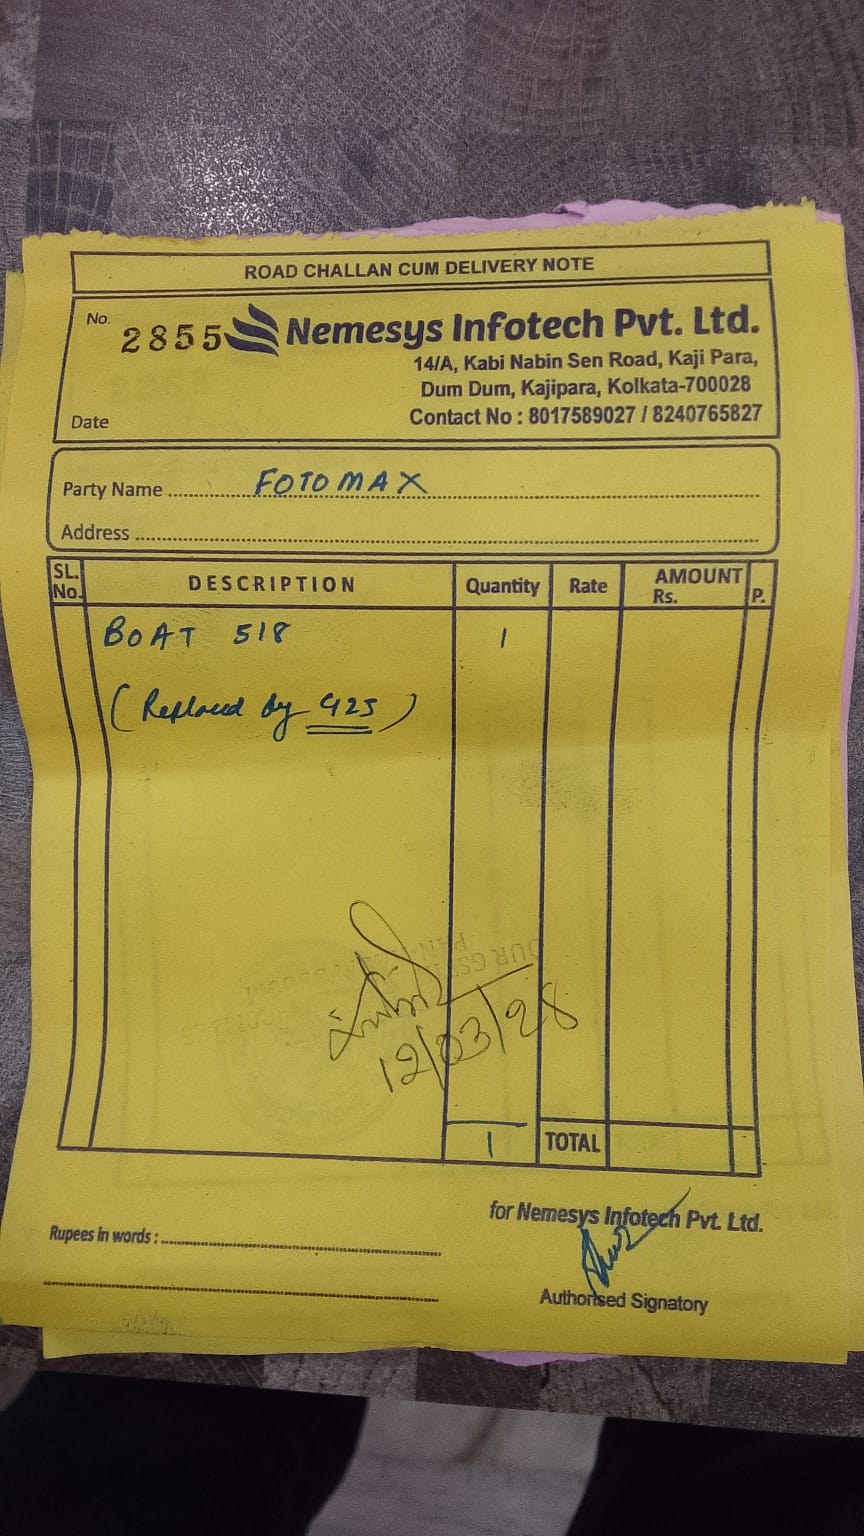 ROAD CHALLAN CUM DELIVERY NOTE
No. 2855 Nemesys Infotech Pvt. Ltd.
14/A, Kabi Nabin Sen Road, Kaji Para,
Dum Dum, Kajipara, Kolkata-700028
Date
Contact No : 8017589027 / 8240765827
Party Name FOTOMAX
Address
SL. No. DESCRIPTION Quantity Rate AMOUNT Rs. P.
BOAT 518 1
(Replaced by 425)
12/03/28
1 TOTAL
for Nemesys Infotech Pvt. Ltd.
Rupees in words :
Authorised Signatory